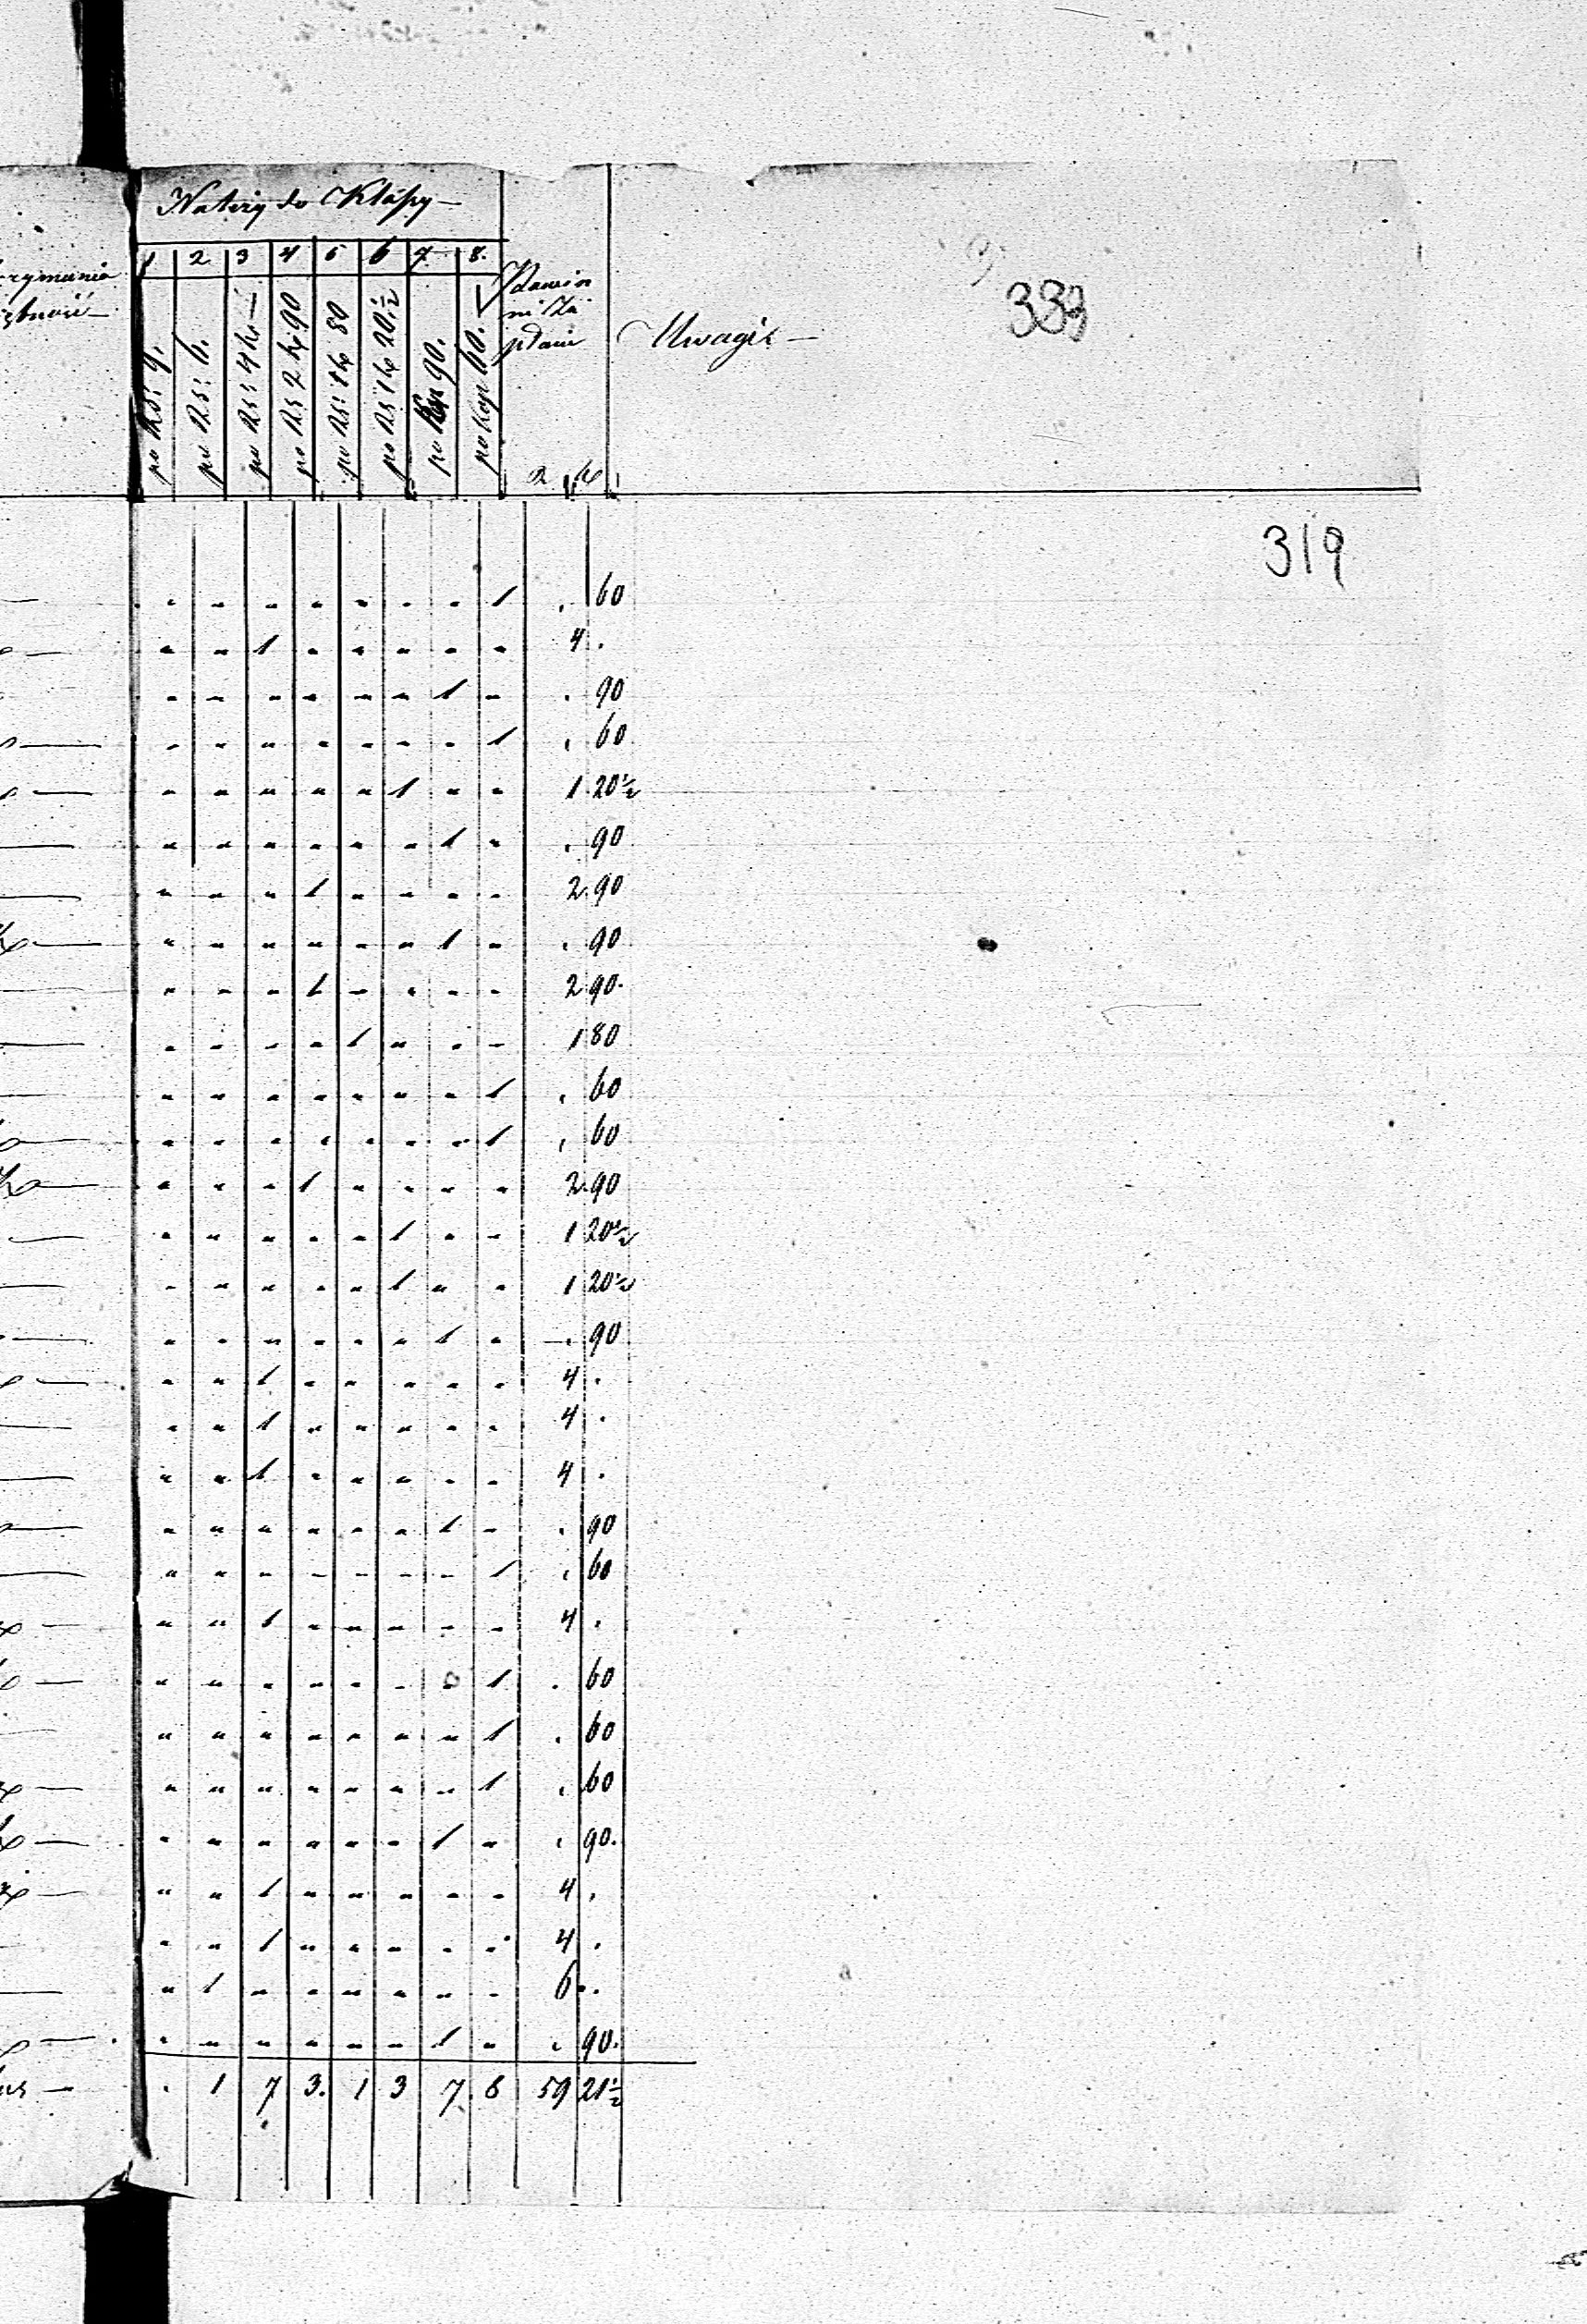 Należy do Klassy —
1 2 3 4 5 6 7 8.
po RS: 9.
po RS: 6.
po RS: 4 k: —
po RS 2 k: 90
po RS: 1 k: 80
po RS 1 k: 20 ½
po kop 90.
po kop 60.
Uwagi —
333
319
" " " " " " " 1 . 60
" " 1 " " " " " 4 .
" " " " " " 1 " . 90
" " " " " " " 1 . 60
" " " " " 1 " " 1 20½
" " " " " " 1 " . 90
" " " 1 " " " " 2 90
" " " " " " 1 " . 90
" " " 1 " " " " 2 90
" " " " 1 " " " 1 80
" " " " " " " 1 . 60
" " " " " " " 1 . 60
" " " 1 " " " " 2 90
" " " " " 1 " " 1 20½
" " " " " 1 " " 1 20½
" " " " " " 1 " . 90
" " 1 " " " " " 4 .
" " 1 " " " " " 4 .
" " 1 " " " " " 4 .
" " " " " " 1 " . 90
" " " " " " " 1 . 60
" " 1 " " " " " 4 .
" " " " " " " 1 . 60
" " " " " " " 1 . 60
" " " " " " " 1 . 60
" " " " " " 1 " . 90.
" " 1 " " " " " 4 .
" " 1 " " " " " 4 .
" 1 " " " " " " 6 .
" " " " " " 1 " . 90.
. 1 7 3. 1 3 7. 8 59 21½